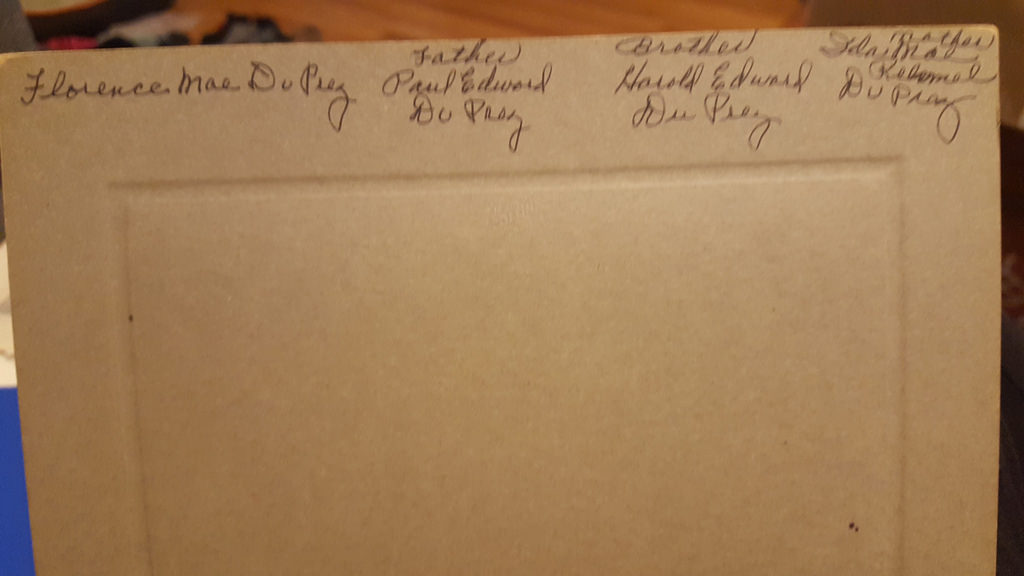 Florence Mae Du Prey
Father
Paul Edward
Du Prey
Brother
Harold Edward
Du Prey
Mother
Mae
Du Prey